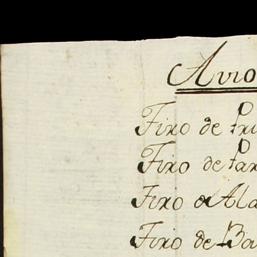 Avio
Fixo de Pri
Fixo de Par
Fixo de Ala
Fixo de Ba